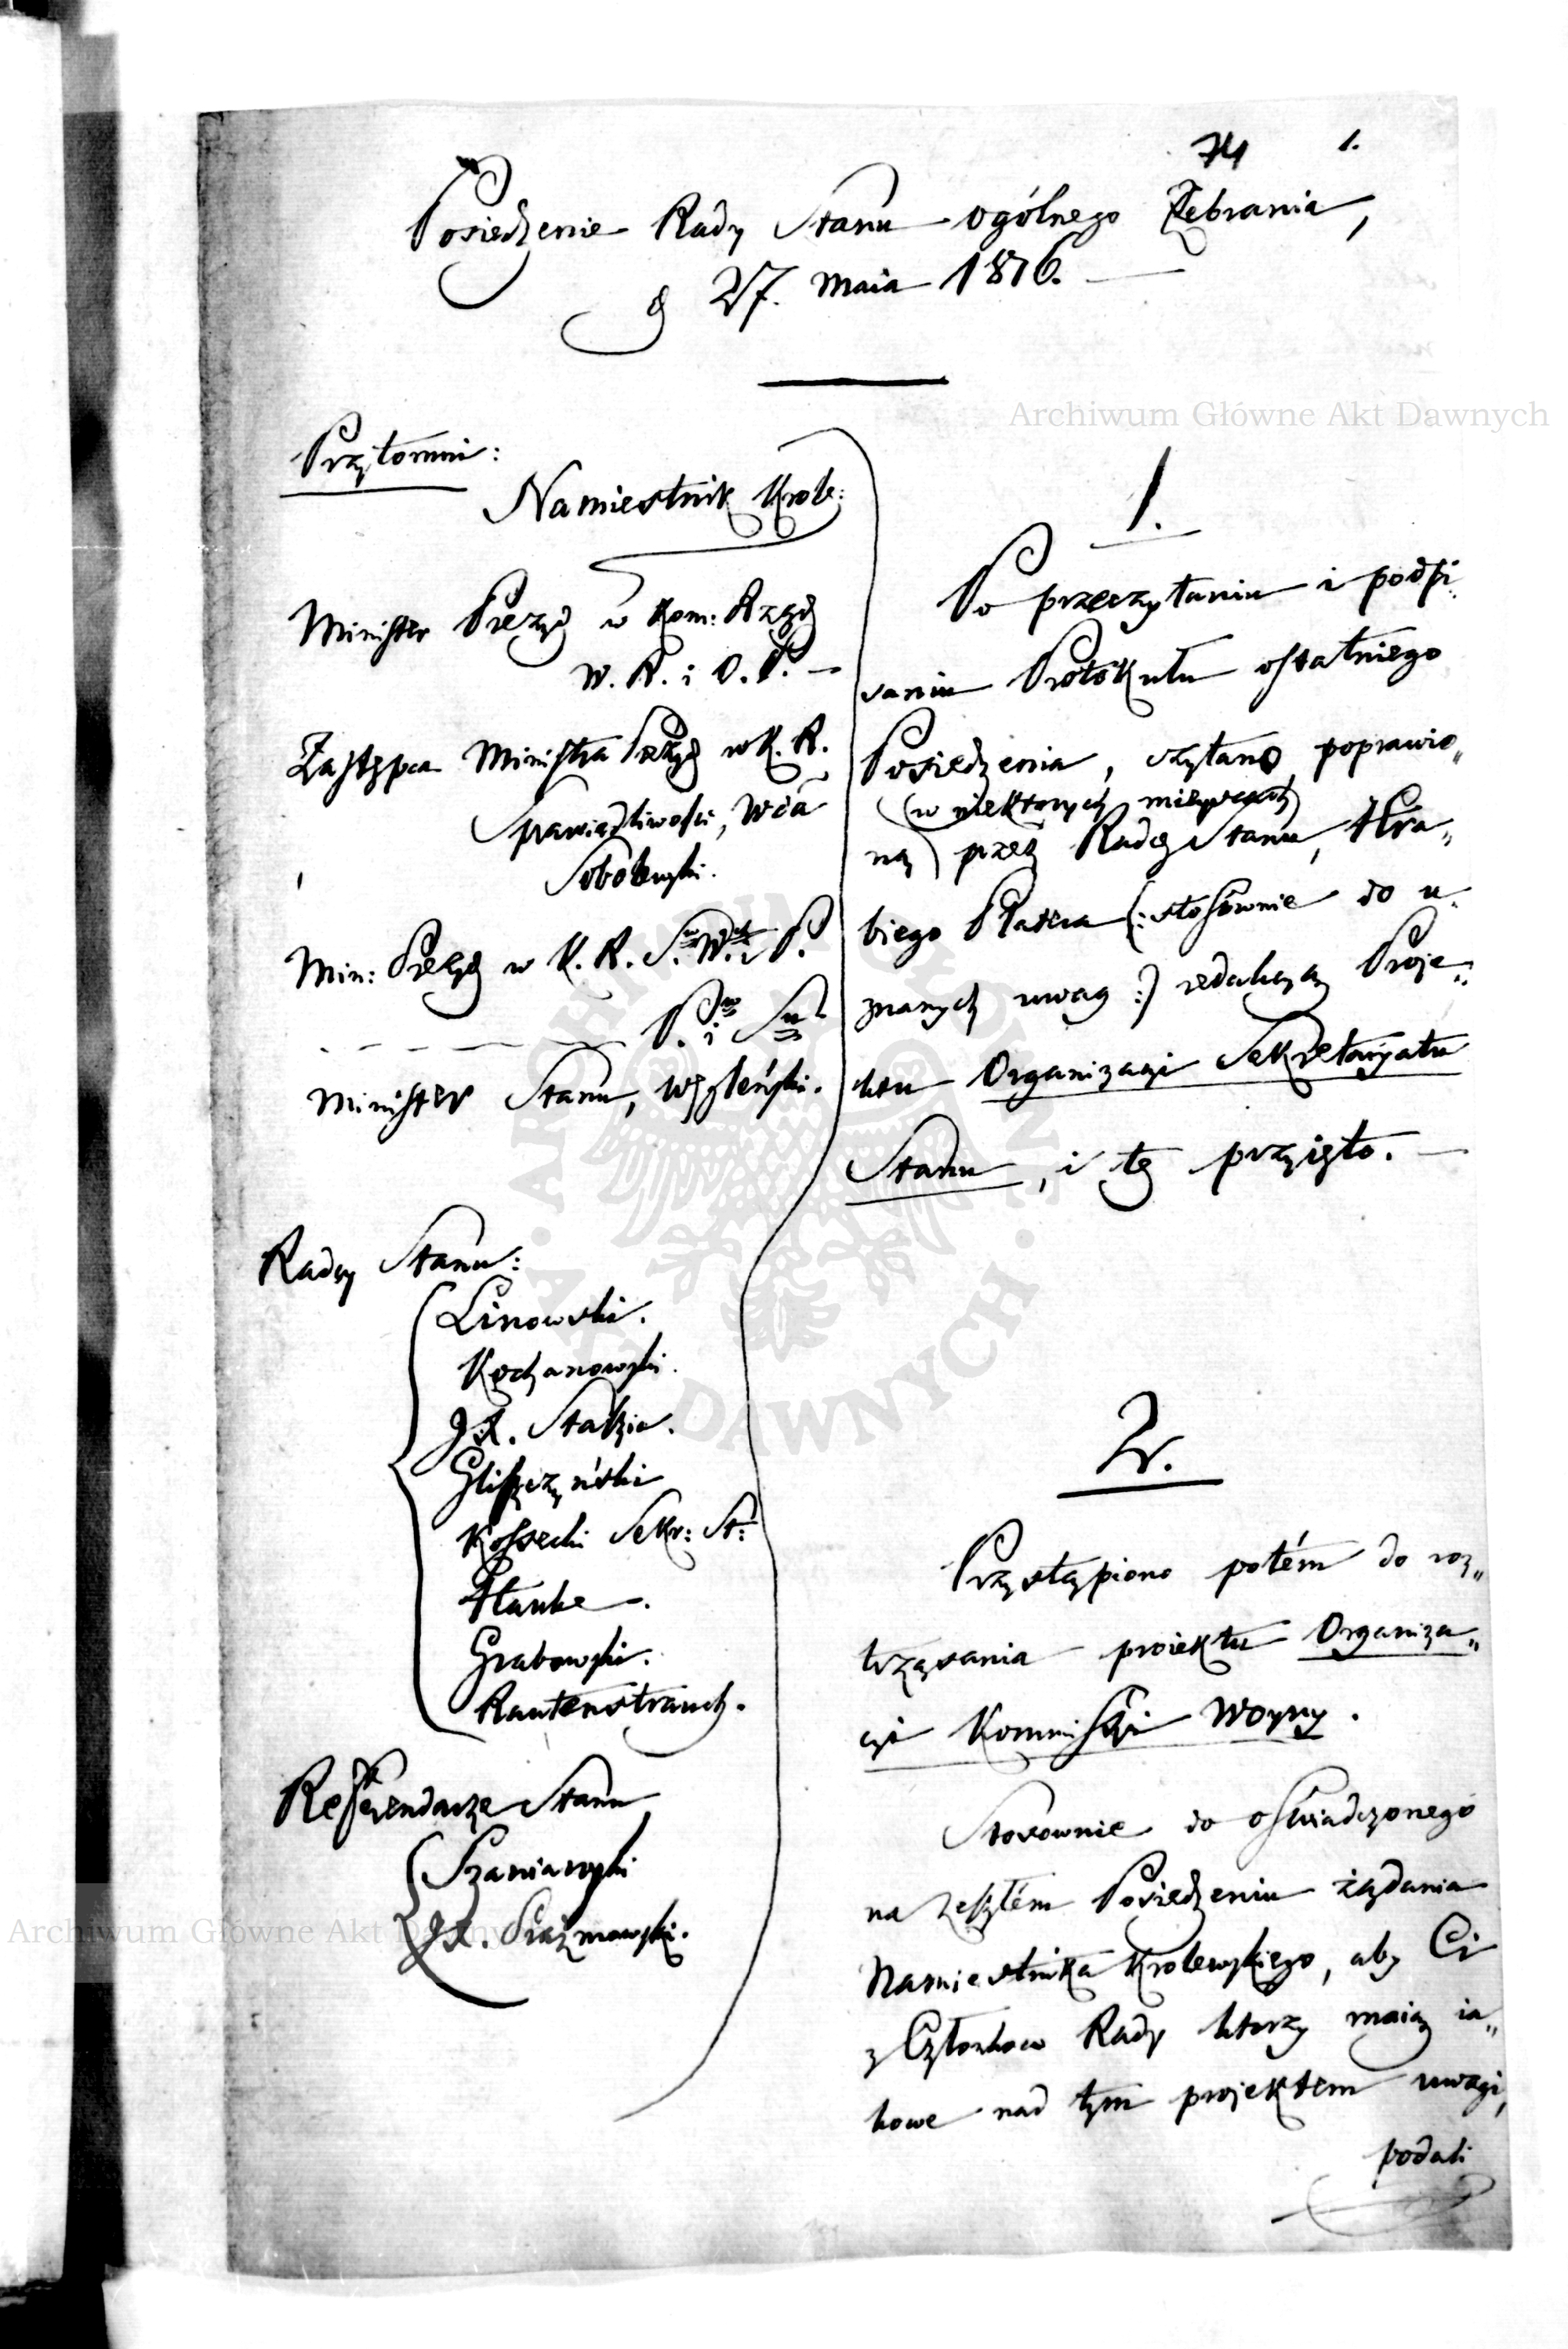 74 1.
Posiedzenie Rady Stanu ogólnego Zebrania,
d 27. Maia 1816.
Archiwum Główne Akt Dawnych
Przytomni:
Namiestnik Krole:
Minister Prezyd w Kom: Rząd
W. R. i O. P.
Zastępca Ministra Prezyd w K. R.
Sprawiedliwości, Wda
Sobolewski.
Min: Prezyd w K. R. S. W. i P.
P. i S.
Minister Stanu, Węgleński.
Radcy Stanu:
Linowski.
Kochanowski.
JX. Staszic.
Gliszczyński
Kossecki Sekr: St:
Hauke.
Grabowski.
Rautenstrauch.
Referendarze Stanu
Szaniawski
JX. Prażmowski.
Archiwum Główne Akt Dawnych
1.
Po przeczytaniu i podpi:
saniu Protokułu ostatniego
Posiedzenia, czytano, poprawio„
(w niektorych mieyscach)
ną przez Radę Stanu, Hra„
biego Platera (: stosownie do u„
znanych uwag :) redakcyą Proje„
ktu Organizacyi Sekretaryatu
Stanu, i tę przyięto.
2.
Przystąpiono potém do roz„
trząsania proiektu Organiza„
cyi Kommissyi Woyny.
Stosownie do oświadczonego
na zeszłém Posiedzeniu żądania
Namiestnika Krolewskiego, aby Ci
z Członkow Rady ktorzy maią ia„
kowe nad tym projektem uwagi,
podali
ARCHIWUM GŁÓWNE AKT DAWNYCH